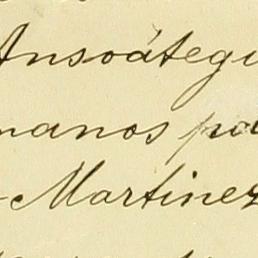 Ansoátegui
manos pa
Martinez